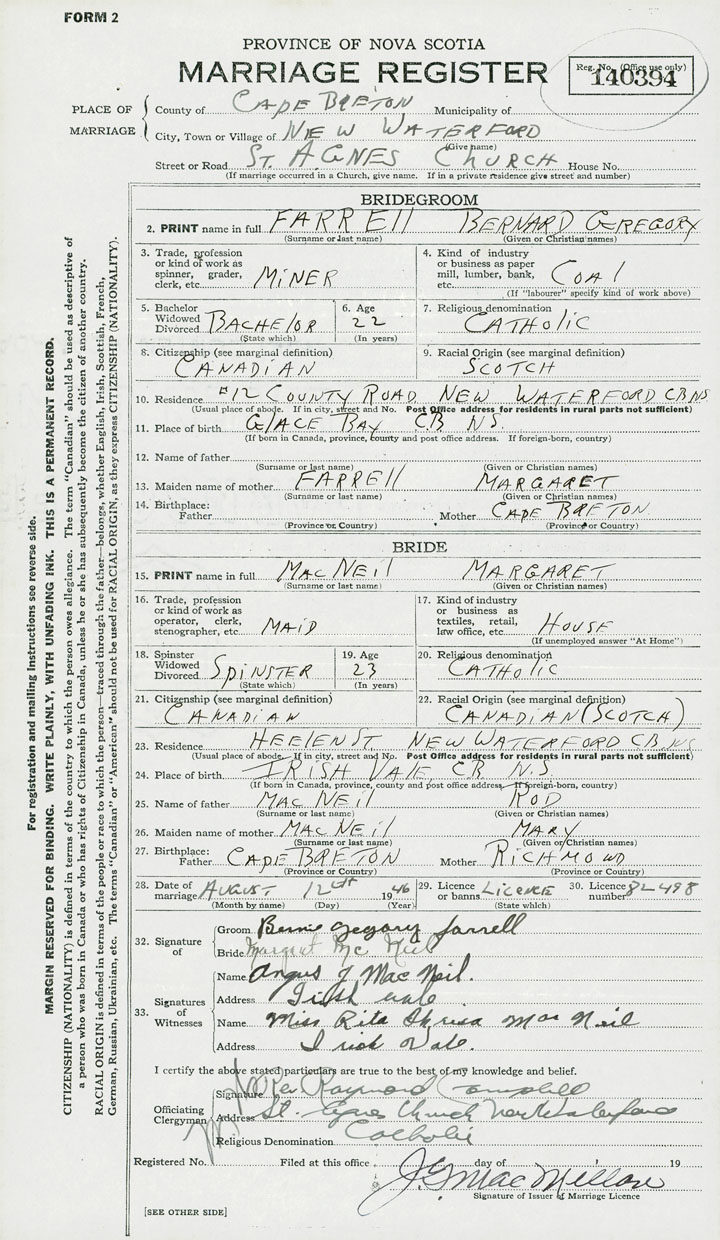 FORM 2
PROVINCE OF NOVA SCOTIA
MARRIAGE REGISTER
Reg. No. (Office use only)
140394
PLACE OF MARRIAGE
County of CAPE BRETON Municipality of
City, Town or Village of NEW WATERFORD
(Give name)
Street or Road ST. AGNES CHURCH House No.
(If marriage occurred in a Church, give name. If in a private residence give street and number)
BRIDEGROOM
2. PRINT name in full FARRELL BERNARD GREGORY
(Surname or last name) (Given or Christian names)
3. Trade, profession
or kind of work as
spinner, grader,
clerk, etc. MINER
4. Kind of industry
or business as paper
mill, lumber, bank,
etc. COAL
(If "labourer" specify kind of work above)
5. Bachelor
Widowed
Divorced BACHELOR
(State which)
6. Age
22
(In years)
7. Religious denomination
CATHOLIC
8. Citizenship (see marginal definition)
CANADIAN
9. Racial Origin (see marginal definition)
SCOTCH
10. Residence #12 COUNTY ROAD NEW WATERFORD CB NS
(Usual place of abode. If in city, street and No. Post Office address for residents in rural parts not sufficient)
11. Place of birth GLACE BAY CB NS.
(If born in Canada, province, county and post office address. If foreign-born, country)
12. Name of father
(Surname or last name) (Given or Christian names)
13. Maiden name of mother FARRELL MARGARET
(Surname or last name) (Given or Christian names)
14. Birthplace:
Father Mother CAPE BRETON
(Province or Country) (Province or Country)
BRIDE
15. PRINT name in full MACNEIL MARGARET
(Surname or last name) (Given or Christian names)
16. Trade, profession
or kind of work as
operator, clerk,
stenographer, etc. MAID
17. Kind of industry
or business as
textiles, retail,
law office, etc. HOUSE
(If unemployed answer "At Home")
18. Spinster
Widowed
Divorced SPINSTER
(State which)
19. Age
23
(In years)
20. Religious denomination
CATHOLIC
21. Citizenship (see marginal definition)
CANADIAN
22. Racial Origin (see marginal definition)
CANADIAN (SCOTCH)
23. Residence HEELEN ST NEW WATERFORD CB NS
(Usual place of abode. If in city, street and No. Post Office address for residents in rural parts not sufficient)
24. Place of birth IRISH VALE CB N.S
(If born in Canada, province, county and post office address. If foreign-born, country)
25. Name of father MACNEIL ROD
(Surname or last name) (Given or Christian names)
26. Maiden name of mother MACNEIL MARY
(Surname or last name) (Given or Christian names)
27. Birthplace:
Father CAPE BRETON Mother RICHMOND
(Province or Country) (Province or Country)
28. Date of
marriage AUGUST 12th 1946
(Month by name) (Day) (Year)
29. Licence
or banns LICENCE
(State which)
30. Licence
number 82498
32. Signature of
Groom Bernie Gregory Farrell
Bride Margret Mc Neil
33. Signatures of Witnesses
Name Angus J MacNeil.
Address Irish vale
Name Miss Rita Theresa Mac Neil
Address Irish Vale.
I certify the above stated particulars are true to the best of my knowledge and belief.
Officiating Clergyman
Signature Rev Raymond Campbell
Address St. Agnes Church New Waterford
Religious Denomination Catholic
Registered No. Filed at this office day of 19
J. G. MacMillan
Signature of Issuer of Marriage Licence
[SEE OTHER SIDE]
For registration and mailing instructions see reverse side.
MARGIN RESERVED FOR BINDING. WRITE PLAINLY, WITH UNFADING INK. THIS IS A PERMANENT RECORD.
CITIZENSHIP (NATIONALITY) is defined in terms of the country to which the person owes allegiance. The term "Canadian" should be used as descriptive of
a person who was born in Canada or who has rights of Citizenship in Canada, unless he or she has subsequently become the citizen of another country.
RACIAL ORIGIN is defined in terms of the people or race to which the person—traced through the father—belongs, whether English, Irish, Scottish, French,
German, Russian, Ukrainian, etc. The terms "Canadian" or "American" should not be used for RACIAL ORIGIN, as they express CITIZENSHIP (NATIONALITY).